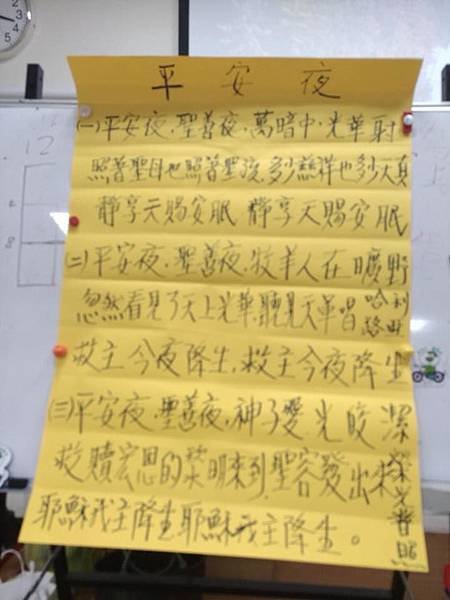 平安夜
(一)平安夜.聖善夜.萬暗中.光華射
照着聖母也照着聖孩.多少慈祥也多少天真
靜享天賜安眠 靜享天賜安眠
(二)平安夜.聖善夜.牧羊人在曠野
忽然看見了天上光華聽見天軍唱哈利路亞
救主今夜降生,救主今夜降生
(三)平安夜.聖善夜.神子愛光皎潔
救贖宏恩的黎明來到.聖容發出來榮光普照
耶穌我主降生耶穌我主降生。
12